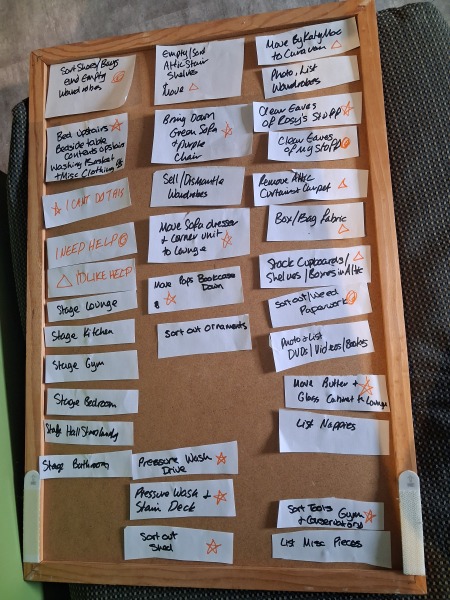 Sort Shoes/Bags
and Empty
Wardrobes
Bed upstairs
Beside table
contents upstairs
Washing Basket
+ Misc Clothing
I CANT DO THIS
I NEED HELP
I'D LIKE HELP
Stage Lounge
Stage Kitchen
Stage Gym
Stage Bedroom
Stage Hall Stairs landing
Stage Bathroom
Empty/Sort
Attic Stair
Shelves
Move
Bring Down
Green Sofa
+ Purple
Chair
Sell/Dismantle
Wardrobes
Move Sofa dresser
+ corner unit
to Lounge
Move Pops Bookcase
Down
Sort out ornaments
Pressure Wash
Drive
Pressure Wash +
Stain Deck
Sort out
Shed
Move
to Caravan
Photo, List
Wardrobes
Clear Eaves
of Rosy's Stuff
Clear Eaves
of my stuff
Remove Attic
Curtains + Carpet
Box/Bag Fabric
Stack Cupboards/
Shelves/Boxes in Attic
Sort out/Weed
Paperwork
Photo + List
DVDs/Videos/Books
Move Butter +
Glass Cabinet to Lounge
List Nappies
Sort Tools Gym
+ Conservatory
List Misc Pieces